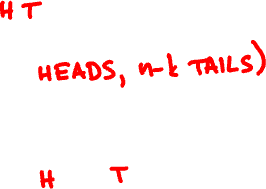 H T
HEADS, n-k TAILS)
H T